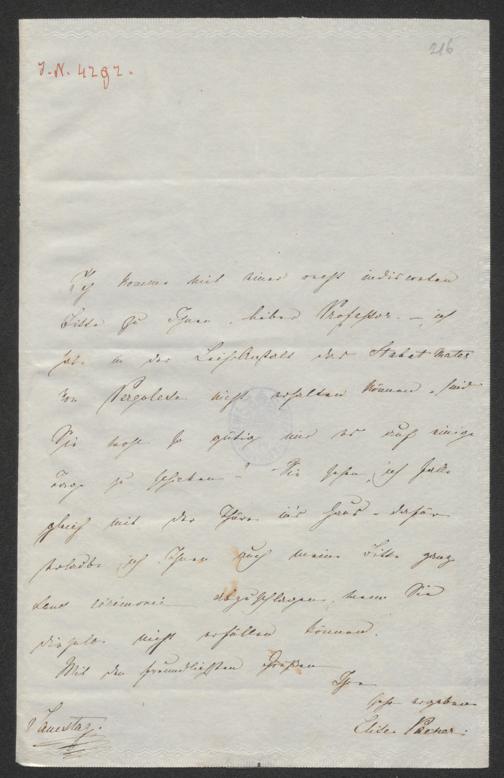 216
I.N. 4292.
Ich komme mit einer recht indiscreten
Bitte zu Ihnen, lieber Professor. — ich
habe in der Leihanstalt das Stabat Mater
von Pergolese nicht erhalten können, sind
Sie wohl so gütig mir es auf einige
Tage zu leihen? Sie sehen, ich falle
gleich mit der Thüre in's Haus – dafür
erlaube ich Ihnen auch meine Bitte ganz
sans cérémonie abzuschlagen, wenn Sie
dieselbe nicht erfüllen können.
Mit den freundlichsten Grüßen
Ihre
sehr ergebene
Elise
Donnerstag.